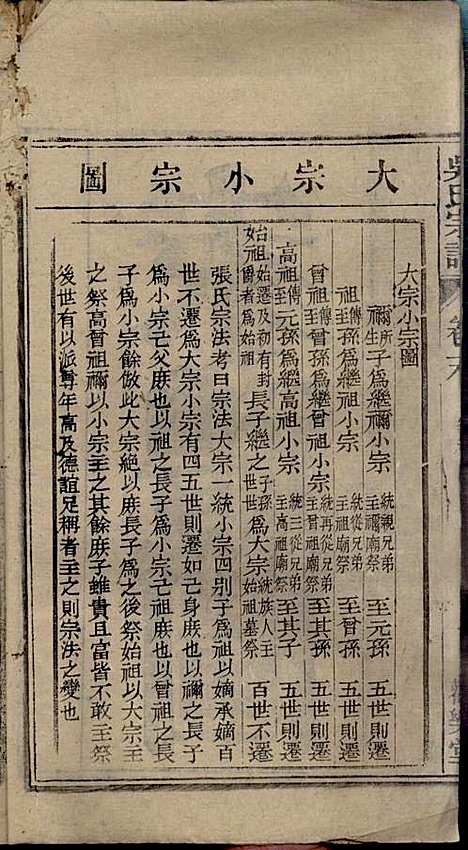 大宗小宗圖
大宗小宗圖
禰所生子爲繼禰小宗 統親兄弟主禰廟祭 至元孫 五世則遷
祖傳至孫爲繼祖小宗 統從兄弟主祖廟祭 至曾孫 五世則遷
曾祖傳至曾孫爲繼曾祖小宗 統再從兄弟主曾祖廟祭 至其孫 五世則遷
高祖傳至元孫爲繼高祖小宗 統三從兄弟主高祖廟祭 至其子 五世則遷
始祖始遷及初有封爵者爲始祖 長子繼之子孫世世爲大宗統族人主始祖墓祭 百世不遷
張氏宗法考曰宗法大宗一統小宗四别子爲祖以嫡承嫡百
世不遷爲大宗小宗有四五世則遷如己身庶也以禰之長子
爲小宗己父庶也以祖之長子爲小宗己祖庶也以曾祖之長
子爲小宗餘倣此大宗絶以庶長子爲之後祭始祖以大宗主
之祭高曾祖禰以小宗主之其餘庶子雖貴且富皆不敢主祭
後世有以派尊年高及德誼足稱者主之則宗法之變也
吳氏宗譜